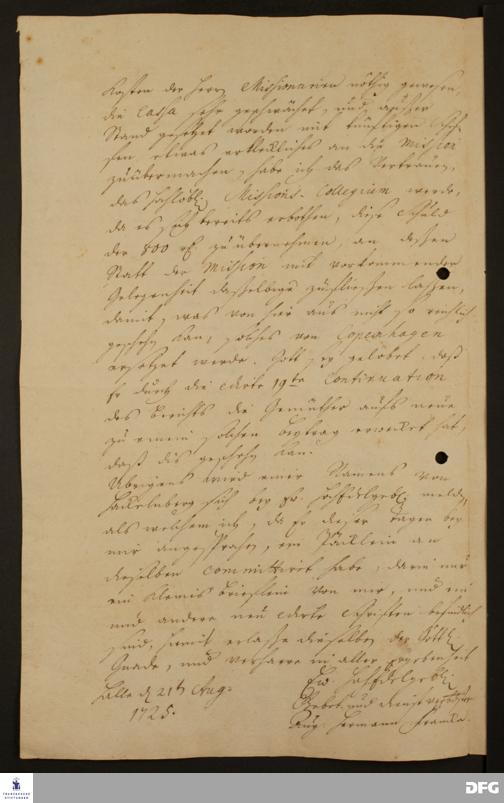 Kosten der Herrn Missionarien nöthig gewesen,
die Cassa sehr geschwächet, und ausser
Stand gesetzet worden mit künftigen Schif-
fen etwas erkleckliches an die Mission
zuübermachen, habe ich das Vertrauen,
das hochlöbl. Missions-Collegium werde,
da es sich bereits erbothen, diese Schuld
der 800 zuübernehmen, an dessen
Statt der Mission mit vorkommender
Gelegenheit dasselbige zufliessen lassen,
damit, was von hier aus nicht so reichlich
geschehen kan, solches von Copenhagen
ersetzet werde. Gott sey gelobet, daß
Er durch die edirte 19te Continuation
des Berichts die Gemüther aufs neue
zu einem solchen beytrag erwecket hat,
daß dis geschehen kan.
Übrigens wird einer Namens von
sich bey Ew. melden,
als welchem ich, da er dieser Tagen bey
mir angesprochen, ein Päcklein an
dieselben committiret habe, darin nur
ein kleines Brieflein von mir, und ein
und andere neu edirte Schriften befindlich
sind, hiemit erlasse dieselben der Göttl.
Gnade, und verharre in aller ergebenheit
Halle d 21t Aug.
1725.
Ew.
Gebet und dienst
Aug. Hermann Francke.
FRANCKESCHE STIFTUNGEN
DFG